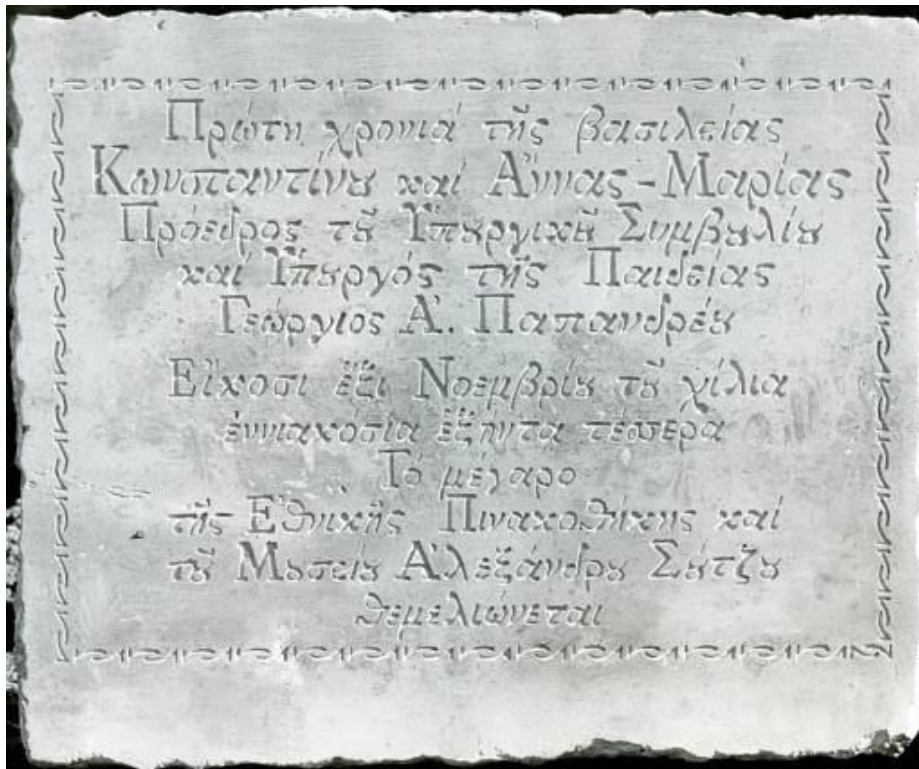 Πρώτη χρονιά τῆς βασιλείας
Κωνσταντίνȣ καί Ἄννας - Μαρίας
Πρόεδρος τȣ͂ Ὑπȣργικȣ͂ Συμβȣλίȣ
καί Ὑπȣργός τῆς Παιδείας
Γεώργιος Ἀ. Παπανδρέȣ
Εἴκοσι ἕξι Νοεμβρίȣ τȣ͂ χίλια
ἐννιακόσια ἑξήντα τέσσερα
Τό μέγαρο
τῆς Ἐθνικῆς Πινακοθήκης καί
τȣ͂ Μȣσείȣ Ἀλεξάνδρȣ Σȣτζȣ
θεμελιώνεται